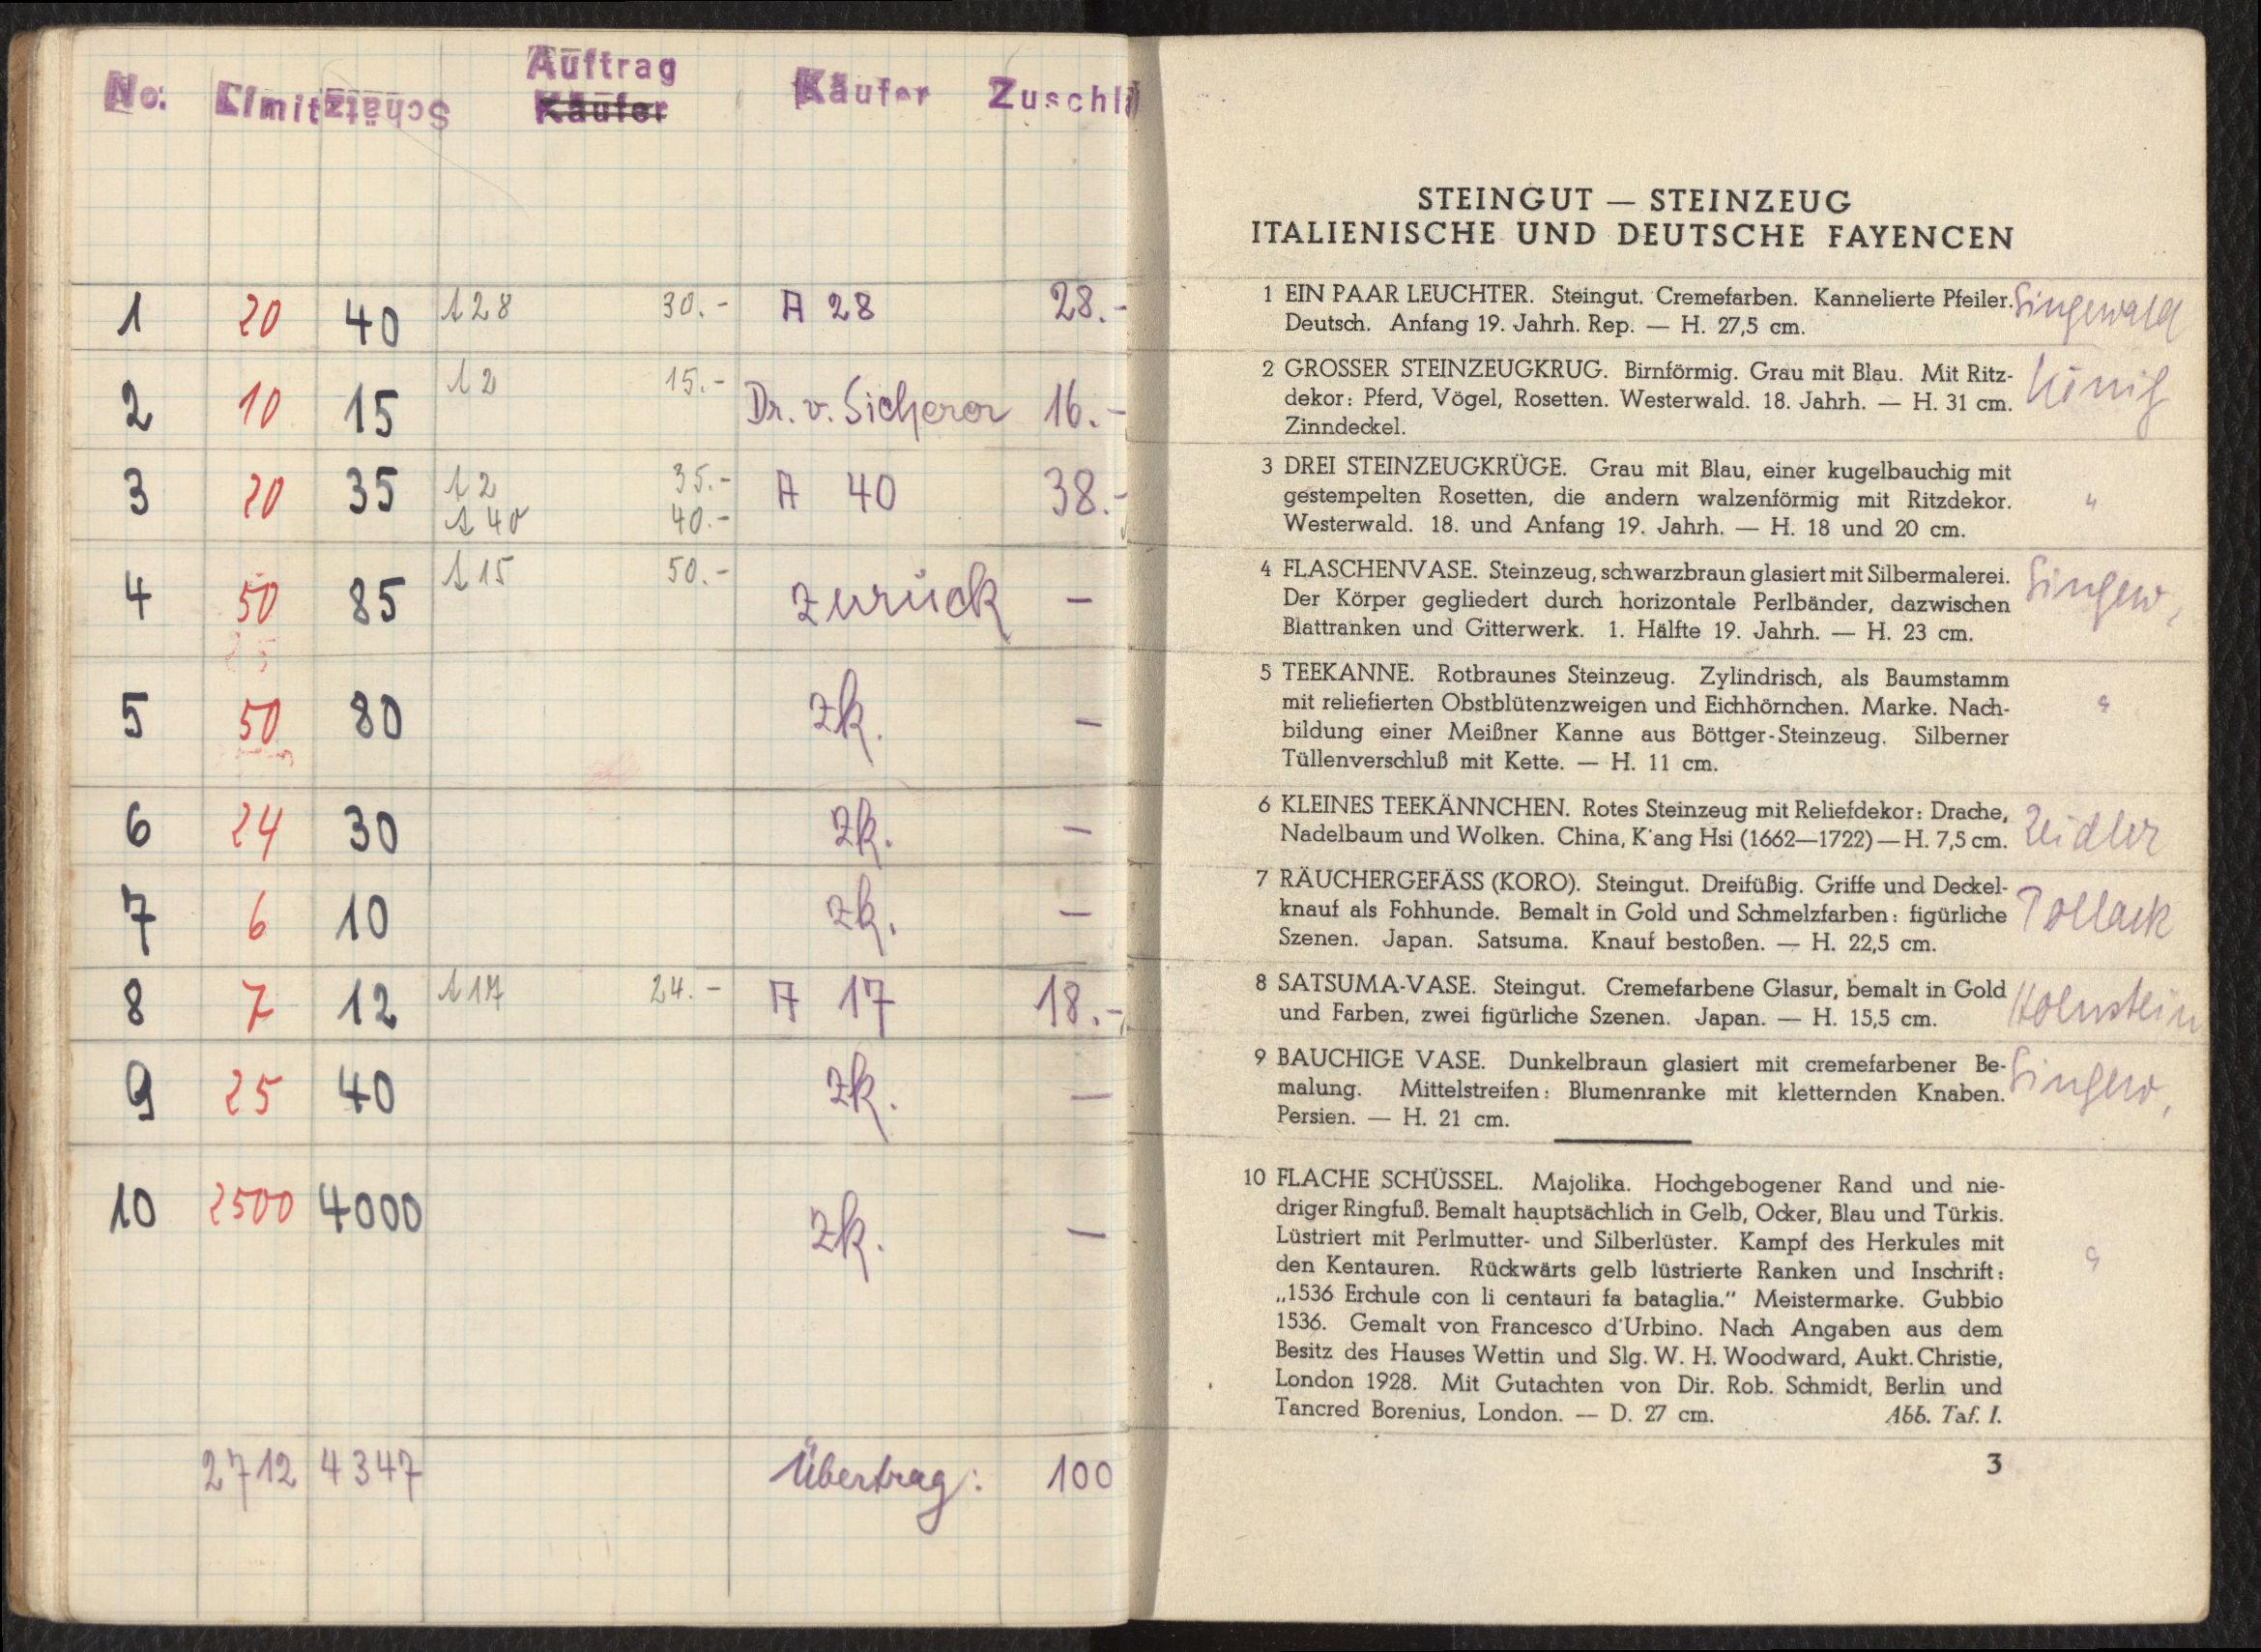 No. Limit Schätz Auftrag Käufer Zuschlä
Käufer
1 20 40 A 28 30.- A 28 28.-
2 10 15 A 2 15.- Dr. v. Sicherer 16.-
3 20 35 A 2 35.- A 40 38.-
A 40 40.-
4 50 85 A 15 50.- zurück –
5 50 80 zk. –
6 24 30 zk. –
7 6 10 zk. –
8 7 12 A 17 24.- A 17 18.-
9 25 40 zk. –
10 2500 4000 zk. –
2712 4347 Übertrag: 100
STEINGUT — STEINZEUG
ITALIENISCHE UND DEUTSCHE FAYENCEN
1 EIN PAAR LEUCHTER. Steingut. Cremefarben. Kannelierte Pfeiler. Singewald
Deutsch. Anfang 19. Jahrh. Rep. — H. 27,5 cm.
2 GROSSER STEINZEUGKRUG. Birnförmig. Grau mit Blau. Mit Ritz- König
dekor: Pferd, Vögel, Rosetten. Westerwald. 18. Jahrh. — H. 31 cm.
Zinndeckel.
3 DREI STEINZEUGKRÜGE. Grau mit Blau, einer kugelbauchig mit
gestempelten Rosetten, die andern walzenförmig mit Ritzdekor. "
Westerwald. 18. und Anfang 19. Jahrh. — H. 18 und 20 cm.
4 FLASCHENVASE. Steinzeug, schwarzbraun glasiert mit Silbermalerei. Singew,
Der Körper gegliedert durch horizontale Perlbänder, dazwischen
Blattranken und Gitterwerk. 1. Hälfte 19. Jahrh. — H. 23 cm.
5 TEEKANNE. Rotbraunes Steinzeug. Zylindrisch, als Baumstamm
mit reliefierten Obstblütenzweigen und Eichhörnchen. Marke. Nach- "
bildung einer Meißner Kanne aus Böttger-Steinzeug. Silberner
Tüllenverschluß mit Kette. — H. 11 cm.
6 KLEINES TEEKÄNNCHEN. Rotes Steinzeug mit Reliefdekor: Drache, Zeidler
Nadelbaum und Wolken. China, K'ang Hsi (1662—1722) — H. 7,5 cm.
7 RÄUCHERGEFÄSS (KORO). Steingut. Dreifüßig. Griffe und Deckel-
knauf als Fohhunde. Bemalt in Gold und Schmelzfarben: figürliche Pollack
Szenen. Japan. Satsuma. Knauf bestoßen. — H. 22,5 cm.
8 SATSUMA-VASE. Steingut. Cremefarbene Glasur, bemalt in Gold Holnstein
und Farben, zwei figürliche Szenen. Japan. — H. 15,5 cm.
9 BAUCHIGE VASE. Dunkelbraun glasiert mit cremefarbener Be- Singew,
malung. Mittelstreifen: Blumenranke mit kletternden Knaben.
Persien. — H. 21 cm.
10 FLACHE SCHÜSSEL. Majolika. Hochgebogener Rand und nie-
driger Ringfuß. Bemalt hauptsächlich in Gelb, Ocker, Blau und Türkis.
Lüstriert mit Perlmutter- und Silberlüster. Kampf des Herkules mit "
den Kentauren. Rückwärts gelb lüstrierte Ranken und Inschrift:
„1536 Erchule con li centauri fa bataglia." Meistermarke. Gubbio
1536. Gemalt von Francesco d'Urbino. Nach Angaben aus dem
Besitz des Hauses Wettin und Slg. W. H. Woodward, Aukt. Christie,
London 1928. Mit Gutachten von Dir. Rob. Schmidt, Berlin und
Tancred Borenius, London. — D. 27 cm. Abb. Taf. I.
3